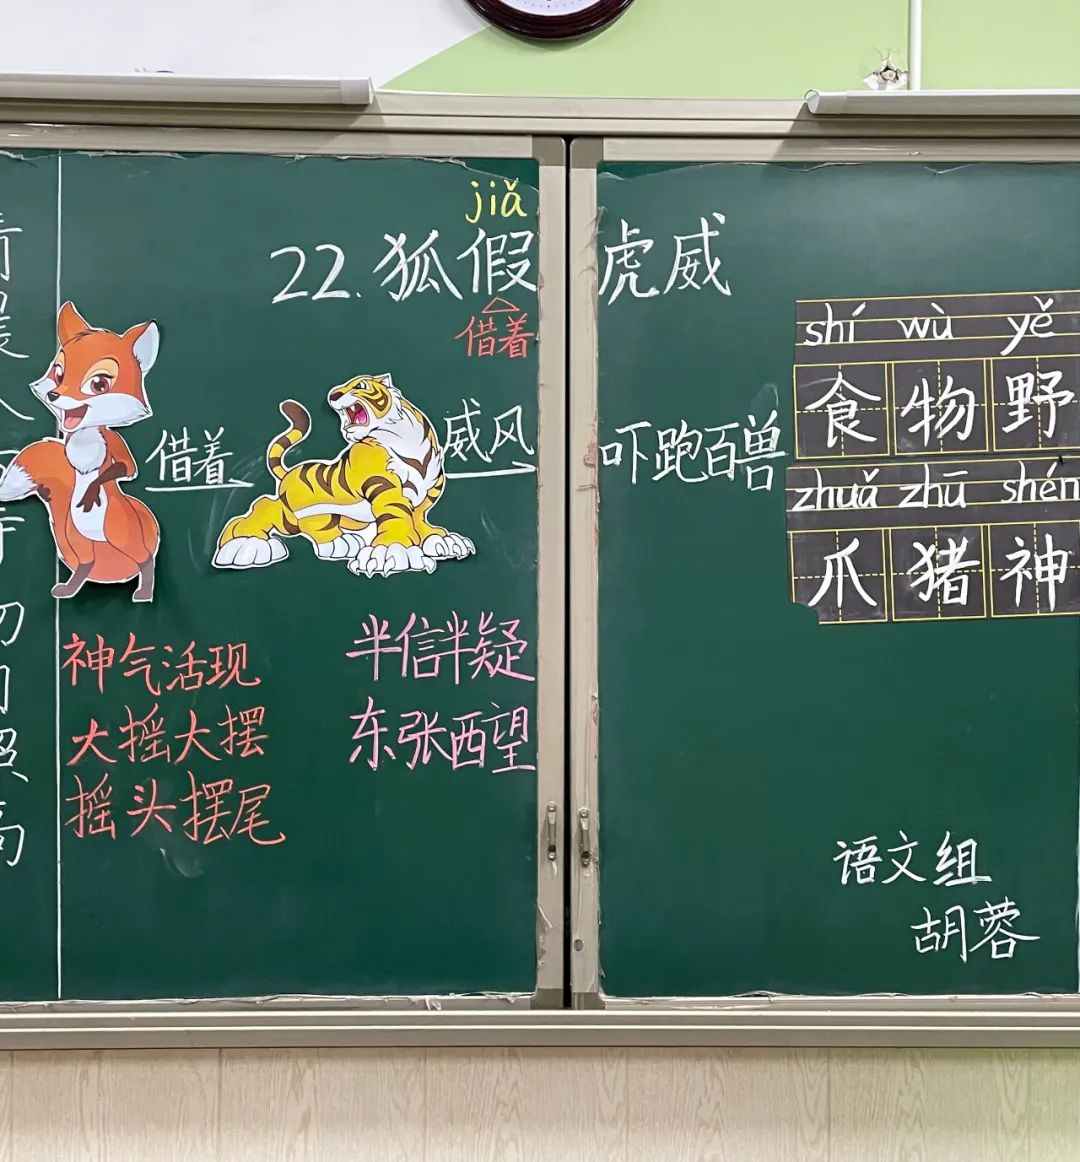 jiǎ
22. 狐假虎威
借着
借着
威风
吓跑百兽
神气活现
大摇大摆
摇头摆尾
半信半疑
东张西望
shí wù yě
食物野
zhuǎ zhū shén
爪猪神
语文组
胡蓉